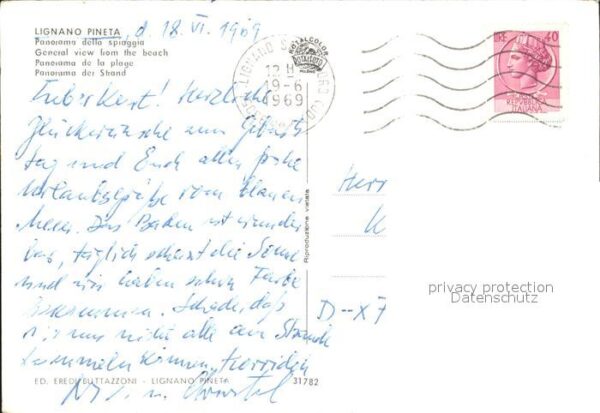 LIGNANO PINETA, d. 18. VI. 1969
Panorama della spiaggia
General view from the beach
Panorama de la plage
Panorama der Strand
Lieber Kurt! Herzliche
Glückwünsche zum Geburts
tag und Euch allen frohe
Urlaubsgrüße vom blauen
Meer. Das Baden ist wunder
bar, täglich scheint die Sonne
und wir haben schon Farbe
bekommen. Schade, daß
wir uns nicht alle am Strande
tummeln können,
ED. EREDI BUTTAZZONI - LIGNANO PINETA
31782
u. Christel
ROTALCOLOR
ROTALFOTO
MILANO
LIGNANO
12 H
19-6
1969
Riproduzione vietata
LIRE 40
REPVBBLICA
ITALIANA
Herr
K
D--X7
privacy protection
Datenschutz